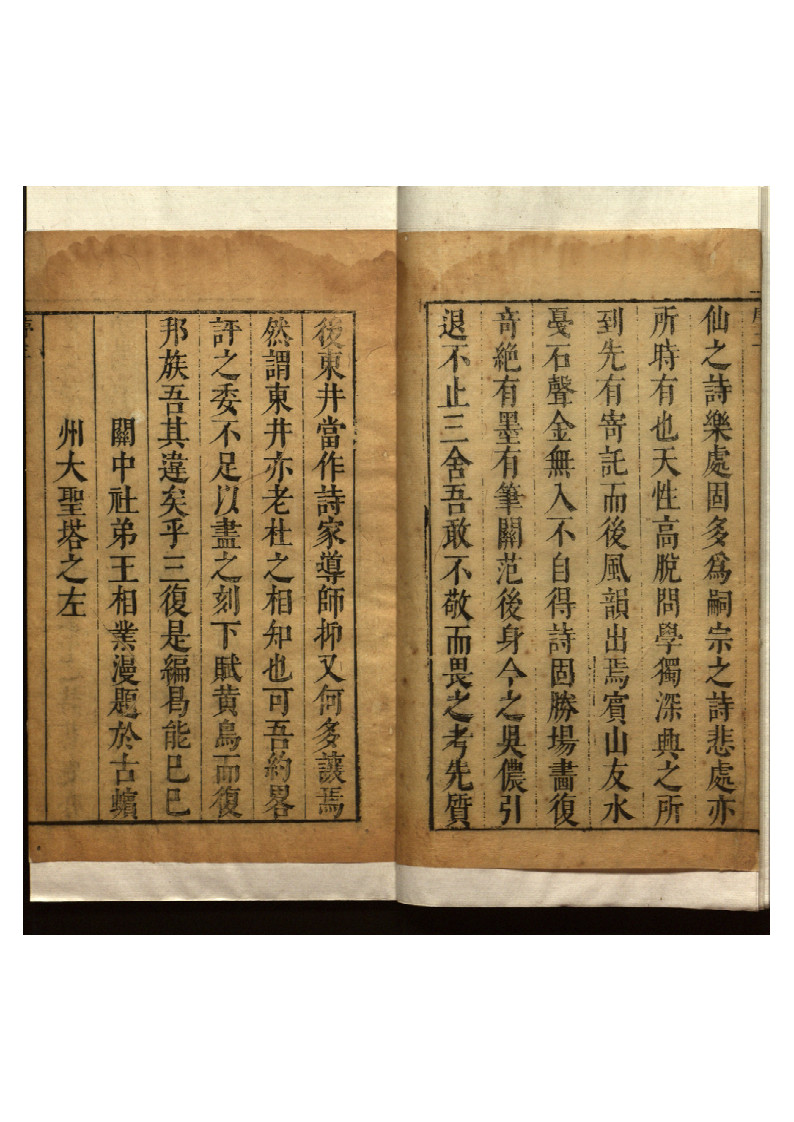 仙之詩樂處固多爲嗣宗之詩悲處亦
所時有也天性高脫問學獨深典之所
到先有寄託而後風韻出焉賓山友水
戞石聲金無入不自得詩固勝場畵復
竒絶有墨有筆關范後身今之吳儂引
退不止三舍吾敢不敬而畏之考先質
後東井當作詩家導師抑又何多讓焉
然謂東井亦老杜之相知也可吾約畧
評之委不足以盡之刻下賦黄鳥而復
邦族吾其違矣乎三復是編曷能已已
關中社弟王相業漫題於古蠙
州大聖塔之左